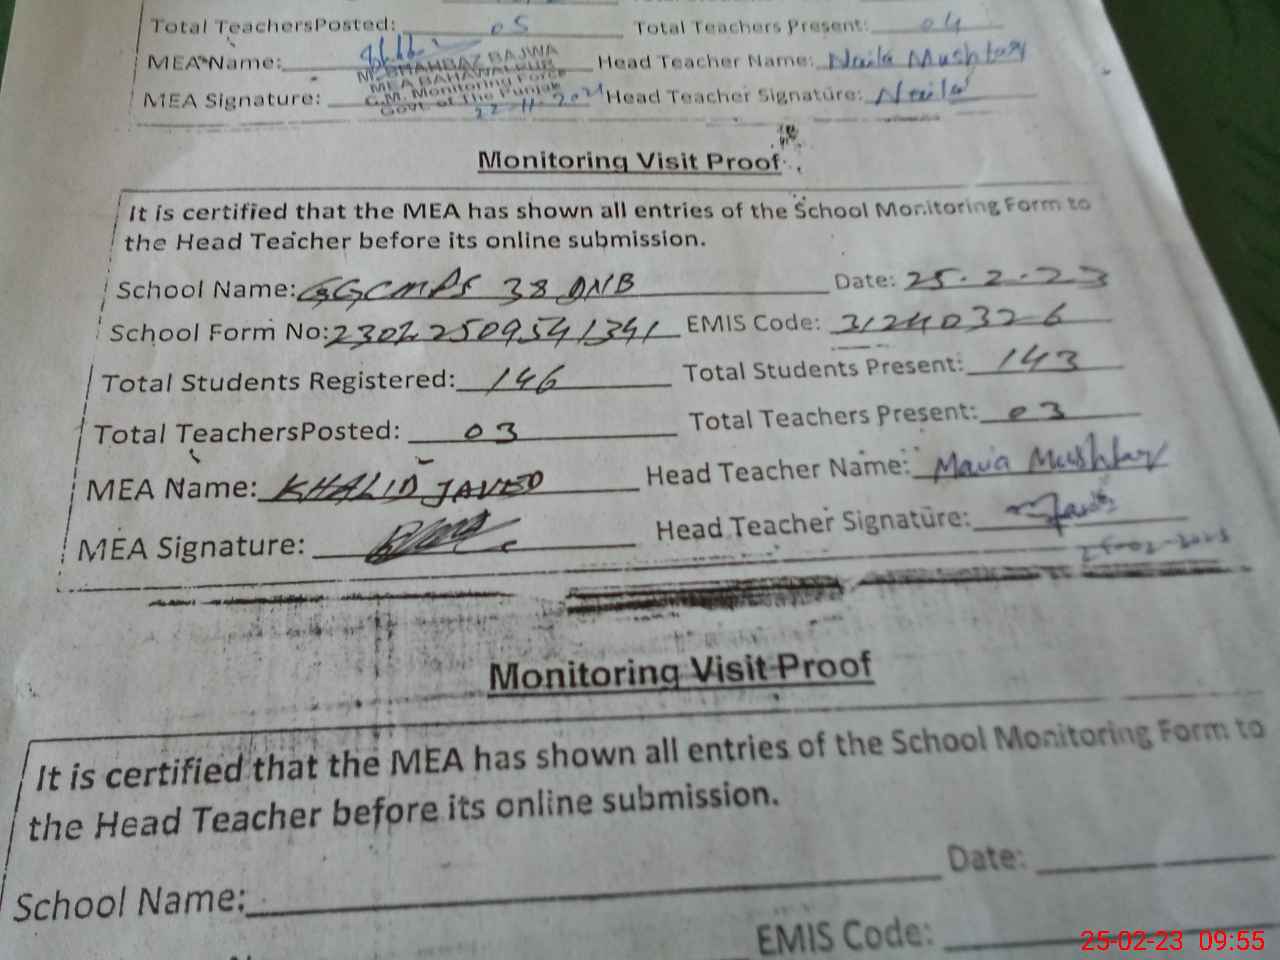 Total TeachersPosted: 05 Total Teachers Present: 04
MEA Name: Head Teacher Name: Naila Mushtaq
M. SHAHBAZ BAJWA
MEA BAHAWALPUR
MEA Signature: Head Teacher Signature: Naila
C.M. Monitoring Force
Govt. of The Punjab
22-11-2021
Monitoring Visit Proof
It is certified that the MEA has shown all entries of the School Monitoring Form to
the Head Teacher before its online submission.
School Name: GGCMPS 38 DNB Date: 25.2.23
School Form No: 23022509541341 EMIS Code: 31240326
Total Students Registered: 146 Total Students Present: 143
Total TeachersPosted: 03 Total Teachers Present: 03
MEA Name: KHALID JAVED Head Teacher Name: Maria Mushtaq
MEA Signature: Head Teacher Signature:
25-02-2023
Monitoring Visit Proof
It is certified that the MEA has shown all entries of the School Monitoring Form to
the Head Teacher before its online submission.
School Name: Date:
EMIS Code:
25-02-23 09:55